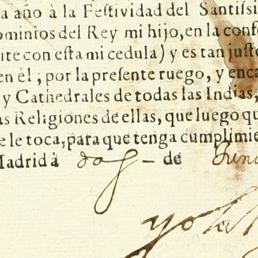 a año à la Festividad del Santissi
ominios del Rey mi hijo, en la confo
ite con esta mi cedula) y es tan justo
en èl; por la presente ruego, y enca
y Cathedrales de todas las Indias,
as Religiones de ellas, que luego qu
e le toca, para que tenga cumplimie
Madrid à dos de Iuni
yo la R